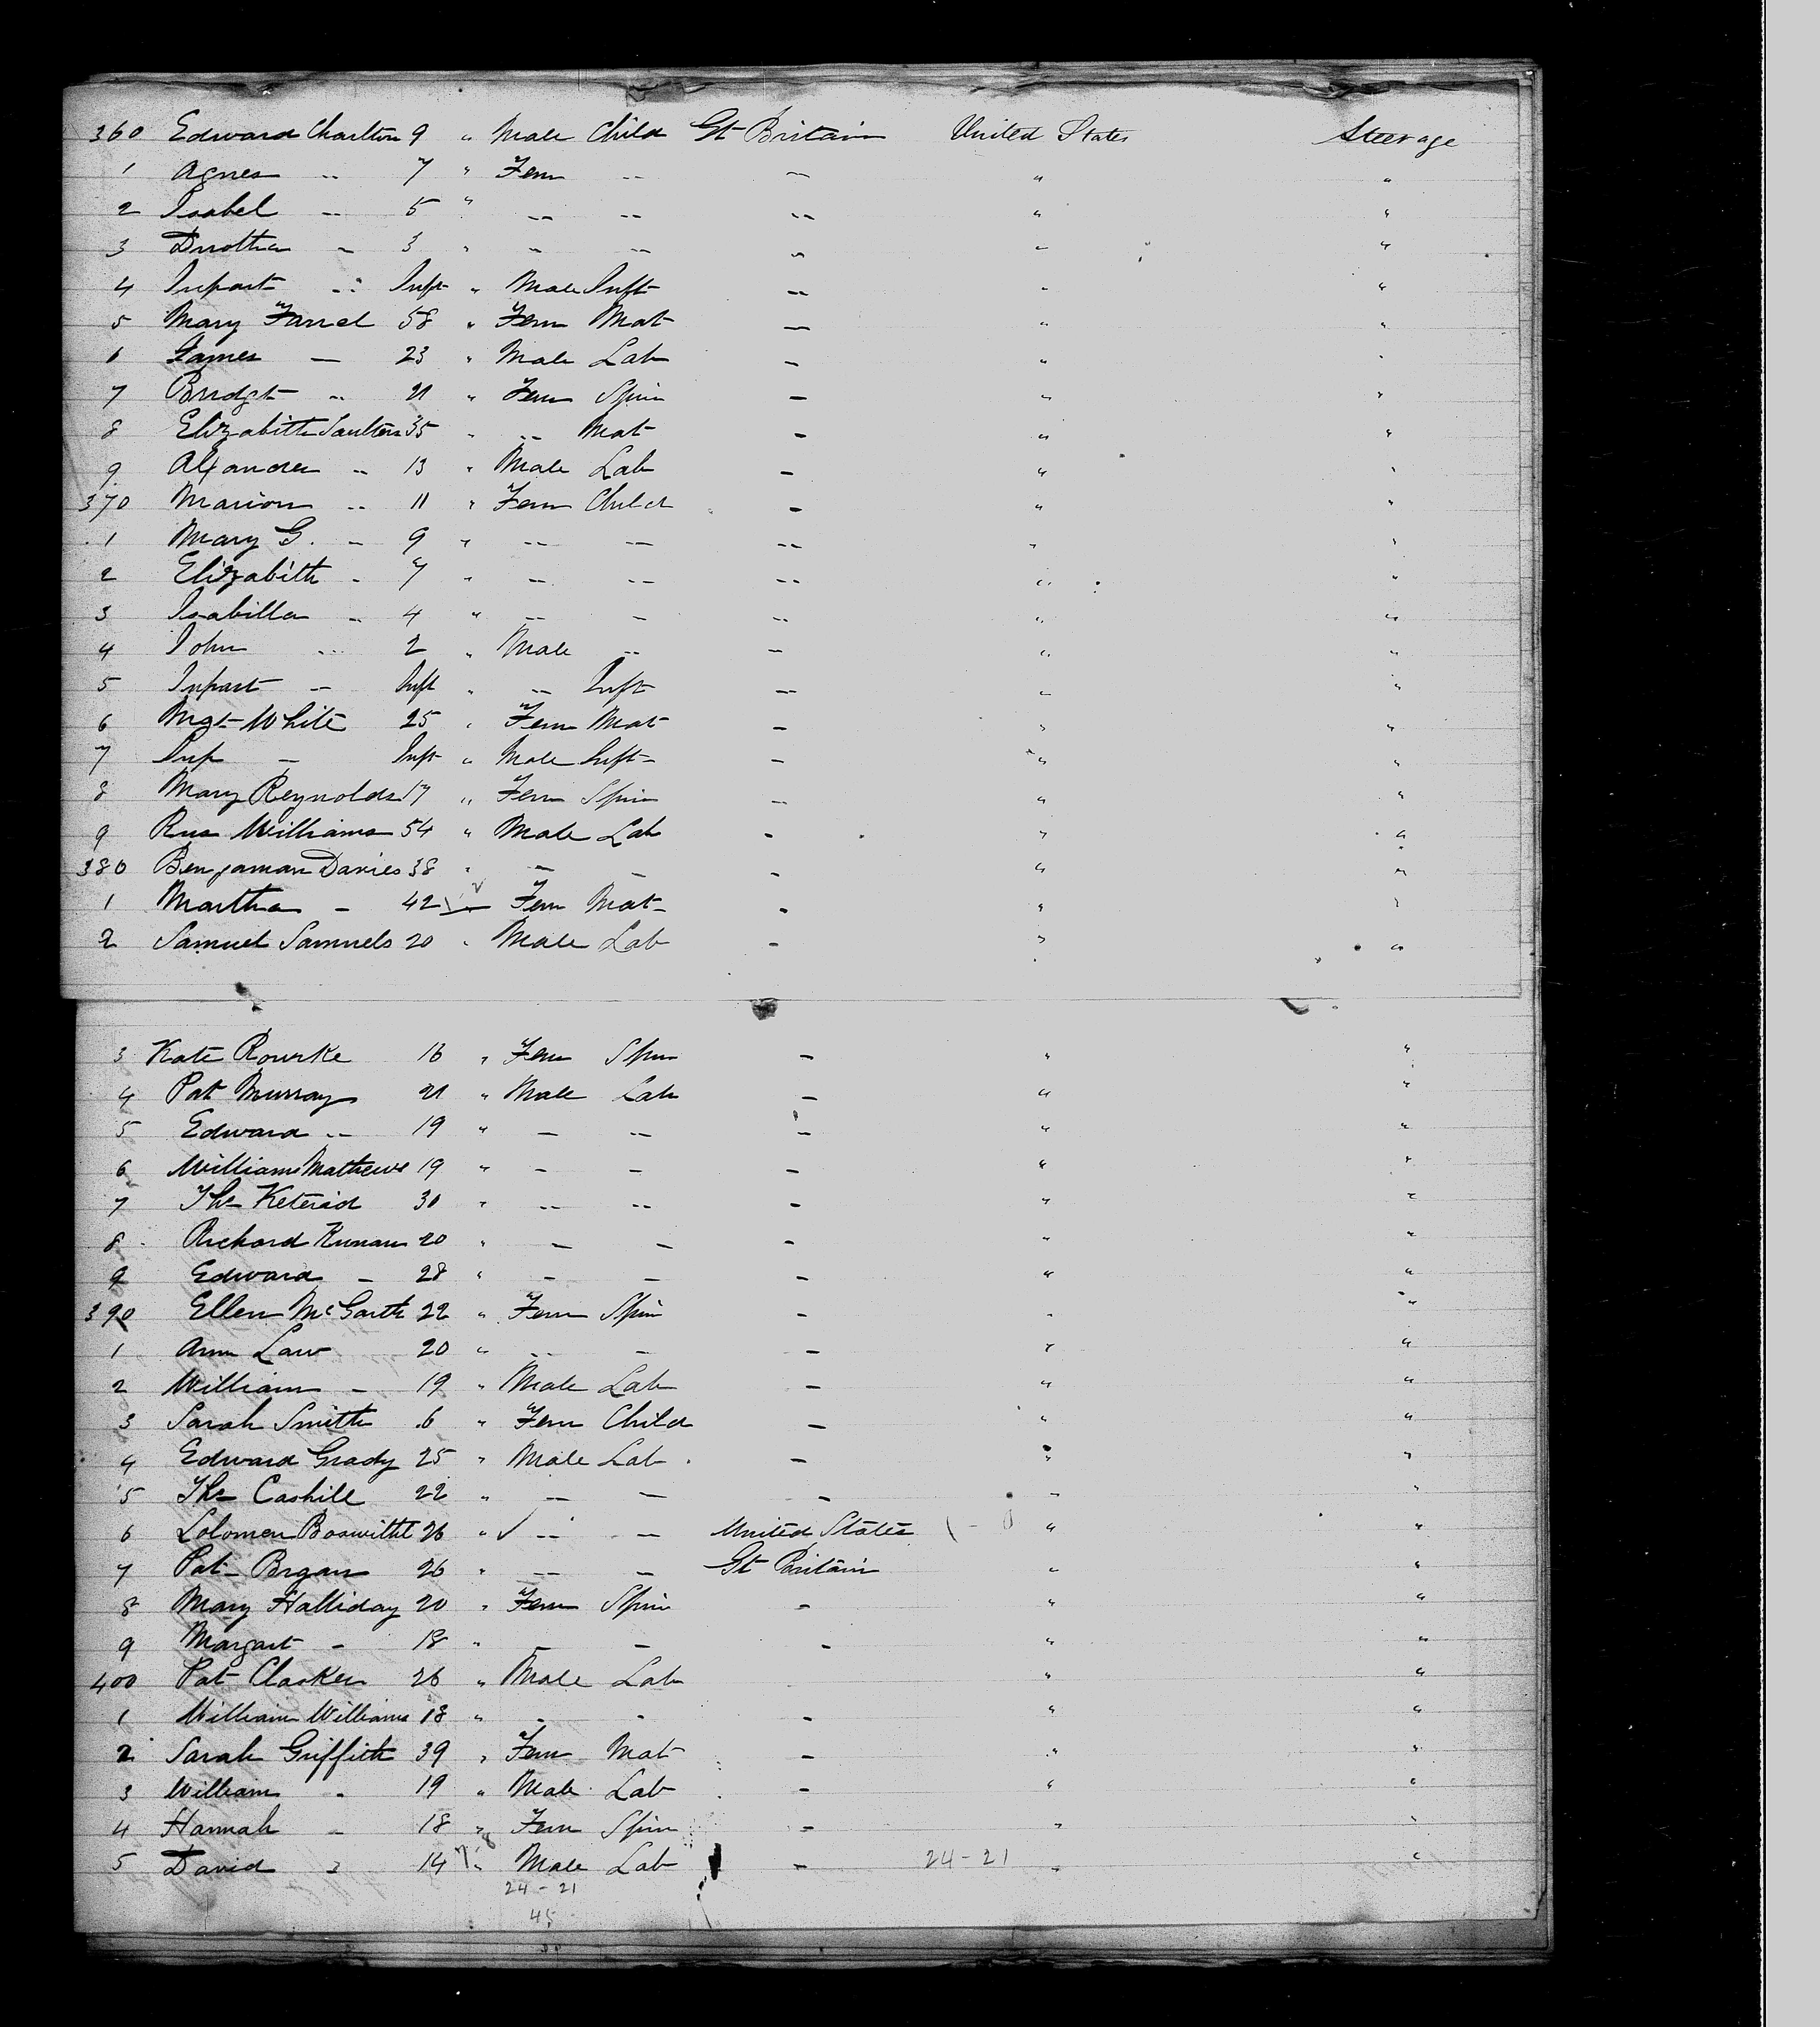 360 Edward Charlton 9 " Male Child Gt Britain United States Steerage
1 Agnes " 7 " Fem " " " "
2 Isabel " 5 " " " " " "
3 Drothea " 3 " " " " " "
4 Infant " Inft " Male Inft " " "
5 Mary Farrel 58 " Fem Mat " " "
6 James — 23 " Male Lab " " "
7 Bridget " 21 " Fem Spin " " "
8 Elizabeth Saulters 35 " " Mat " " "
9 Alxander " 13 " Male Lab " " "
370 Marion " 11 " Fem Child " " "
1 Mary G. " 9 " " " " " "
2 Elizabeth " 7 " " " " " "
3 Isabella " 4 " " " " " "
4 John " 2 " Male " " " "
5 Infant " Inft " " Inft " " "
6 Mgt White 25 " Fem Mat " " "
7 Inf — Inft " Male Inft " " "
8 Mary Reynolds 17 " Fem Spin " " "
9 Williams 54 " Male Lab " " "
380 Benjaman Davies 38 " " " " " "
1 Martha — 42 " Fem Mat " " "
2 Samuel Samuels 20 " Male Lab " " "
3 Kate Rourke 16 " Fem Spin " " "
4 Pat Murray 21 " Male Lab " " "
5 Edward " 19 " " " " " "
6 William Mathews 19 " " " " " "
7 Ths 30 " " " " " "
8 Richard 20 " " " " " "
9 Edward — 28 " " " " " "
390 Ellen McGarth 22 " Fem Spin " " "
1 Ann Law 20 " " " " " "
2 William — 19 " Male Lab " " "
3 Sarah Smith 6 " Fem Child " " "
4 Edward Grady 25 " Male Lab " " "
5 Ths Cashill 22 " " " " " "
6 Solomon 26 " " " United States " "
7 Pat 26 " " " Gt Britain " "
8 Mary Halliday 20 " Fem Spin " " "
9 Margart — 18 " " " " " "
400 Pat 26 " Male Lab " "
1 William Williams 18 " " " " " "
2 Sarah Griffith 39 " Fem Mat " " "
3 William " 19 " Male Lab " " "
4 Hannah — 18 " Fem Spin " " "
5 David " 14 " Male Lab " 24-21 " "
24-21
45